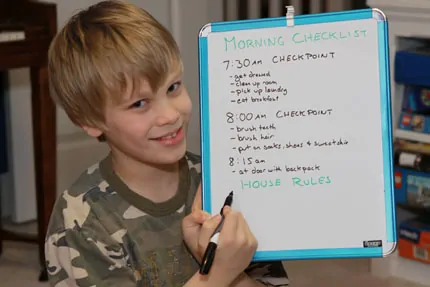 MORNING CHECKLIST
7:30 AM CHECKPOINT
- get dressed
- clean up room
- pick up laundry
- eat breakfast
8:00 AM CHECKPOINT
- brush teeth
- brush hair
- put on socks, shoes & sweatshirt
8:15 am
- at door with backpack
HOUSE RULES